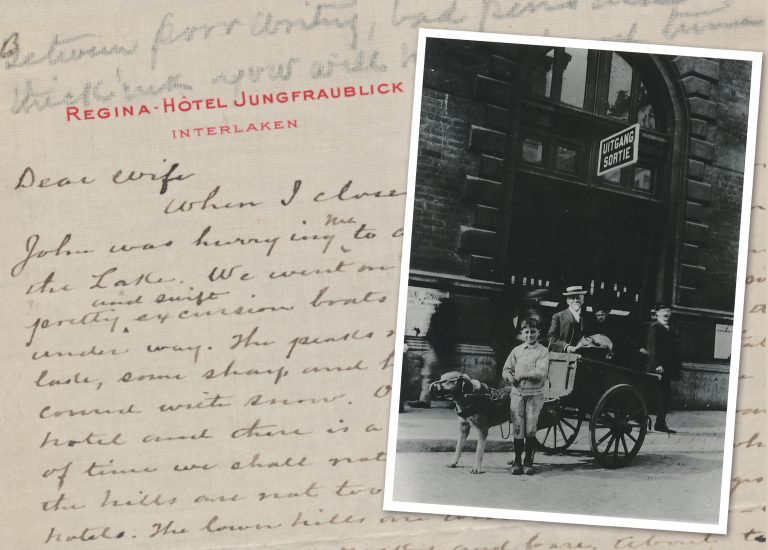 B
between poor writing, bad pens and
thick ink you will
REGINA-HÔTEL JUNGFRAUBLICK
INTERLAKEN
Dear Wife
When I close
John was hurrying me to
the Lake. We went on
pretty, and swift excursion boats
under way. The peaks
lake, some sharp and
cound with snow.
hotel and there is a
of time we shall not
the hills are not too
hotels. The lower hills are
and bare. About to
UITGANG
SORTIE